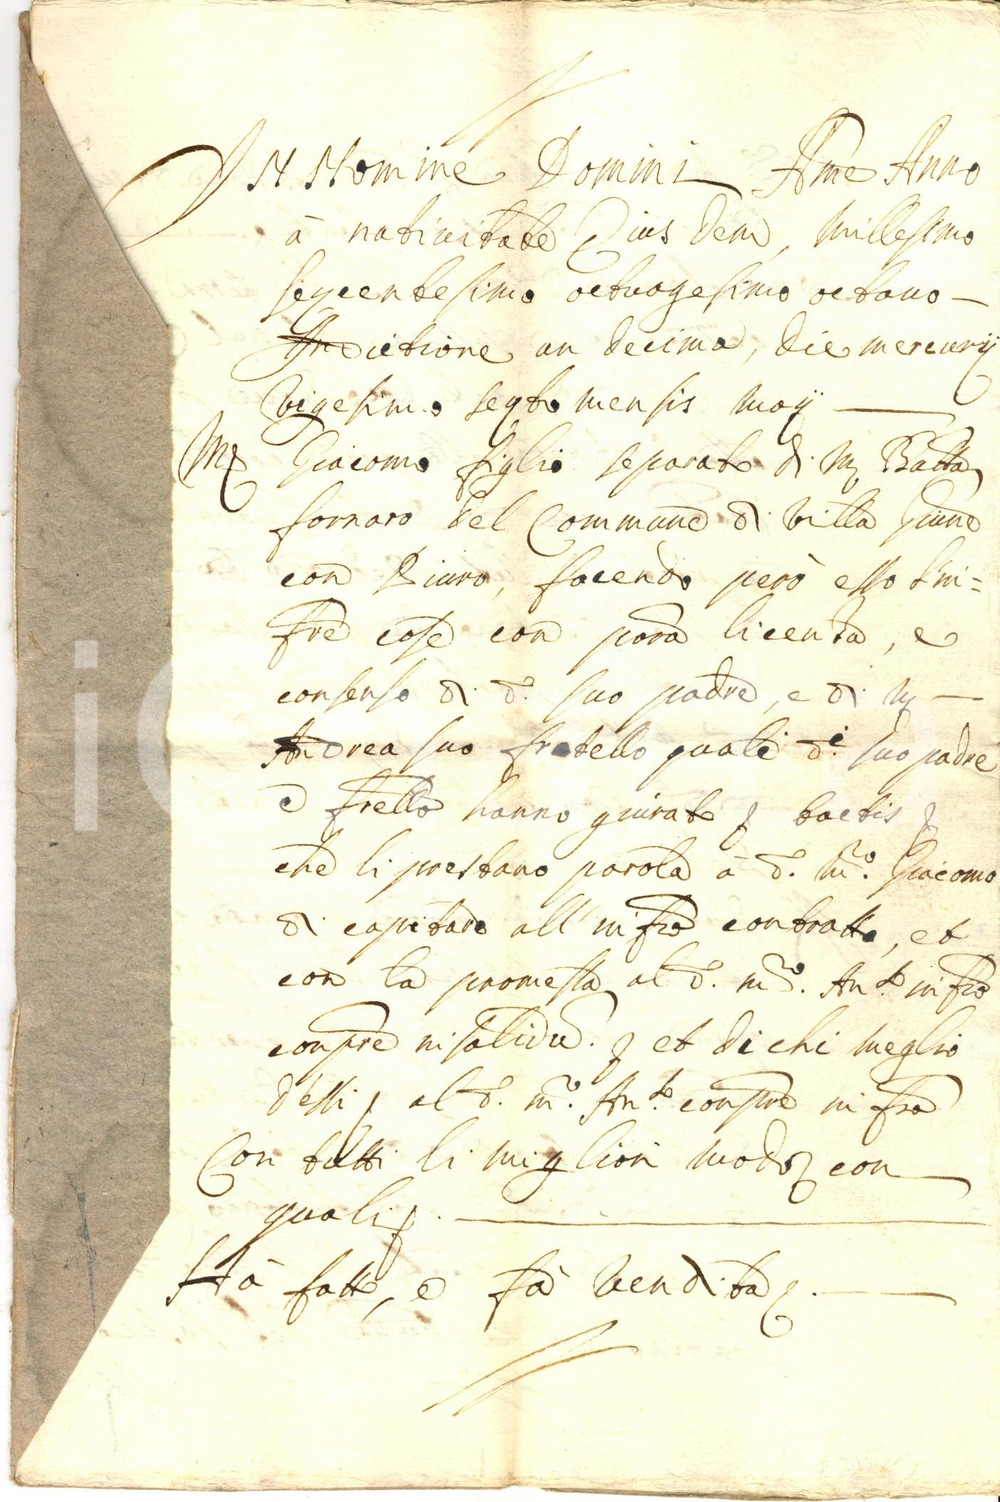 IN Nomine Domini Ame Anno
à nativitate Eius dem, Millesimo
sexcentesimo octuagesimo octavo
Indictione un decima, die mercurij
vigesimo sexto mensis maij
Mr Giacomo figlio separato di Mr Batta
fornaro del Commune di Villa
con, facendo però esso
fre cose con pora licenza, e
consenso di d. suo padre, e di Mr
Andrea suo fratello quali d.i suo padre
e frello hanno giurato p tactis p
che li prestano parola à d. M.o Giacomo
di capitare all'infro contratto, et
con la promessa al d. m.o An.to infro
compre in solidu. p et di chi meglio
d'essi p al d. m.o An.to compre infro
Con tutti li miglior modo con
quali p.
Hà fatto, e fà vendita